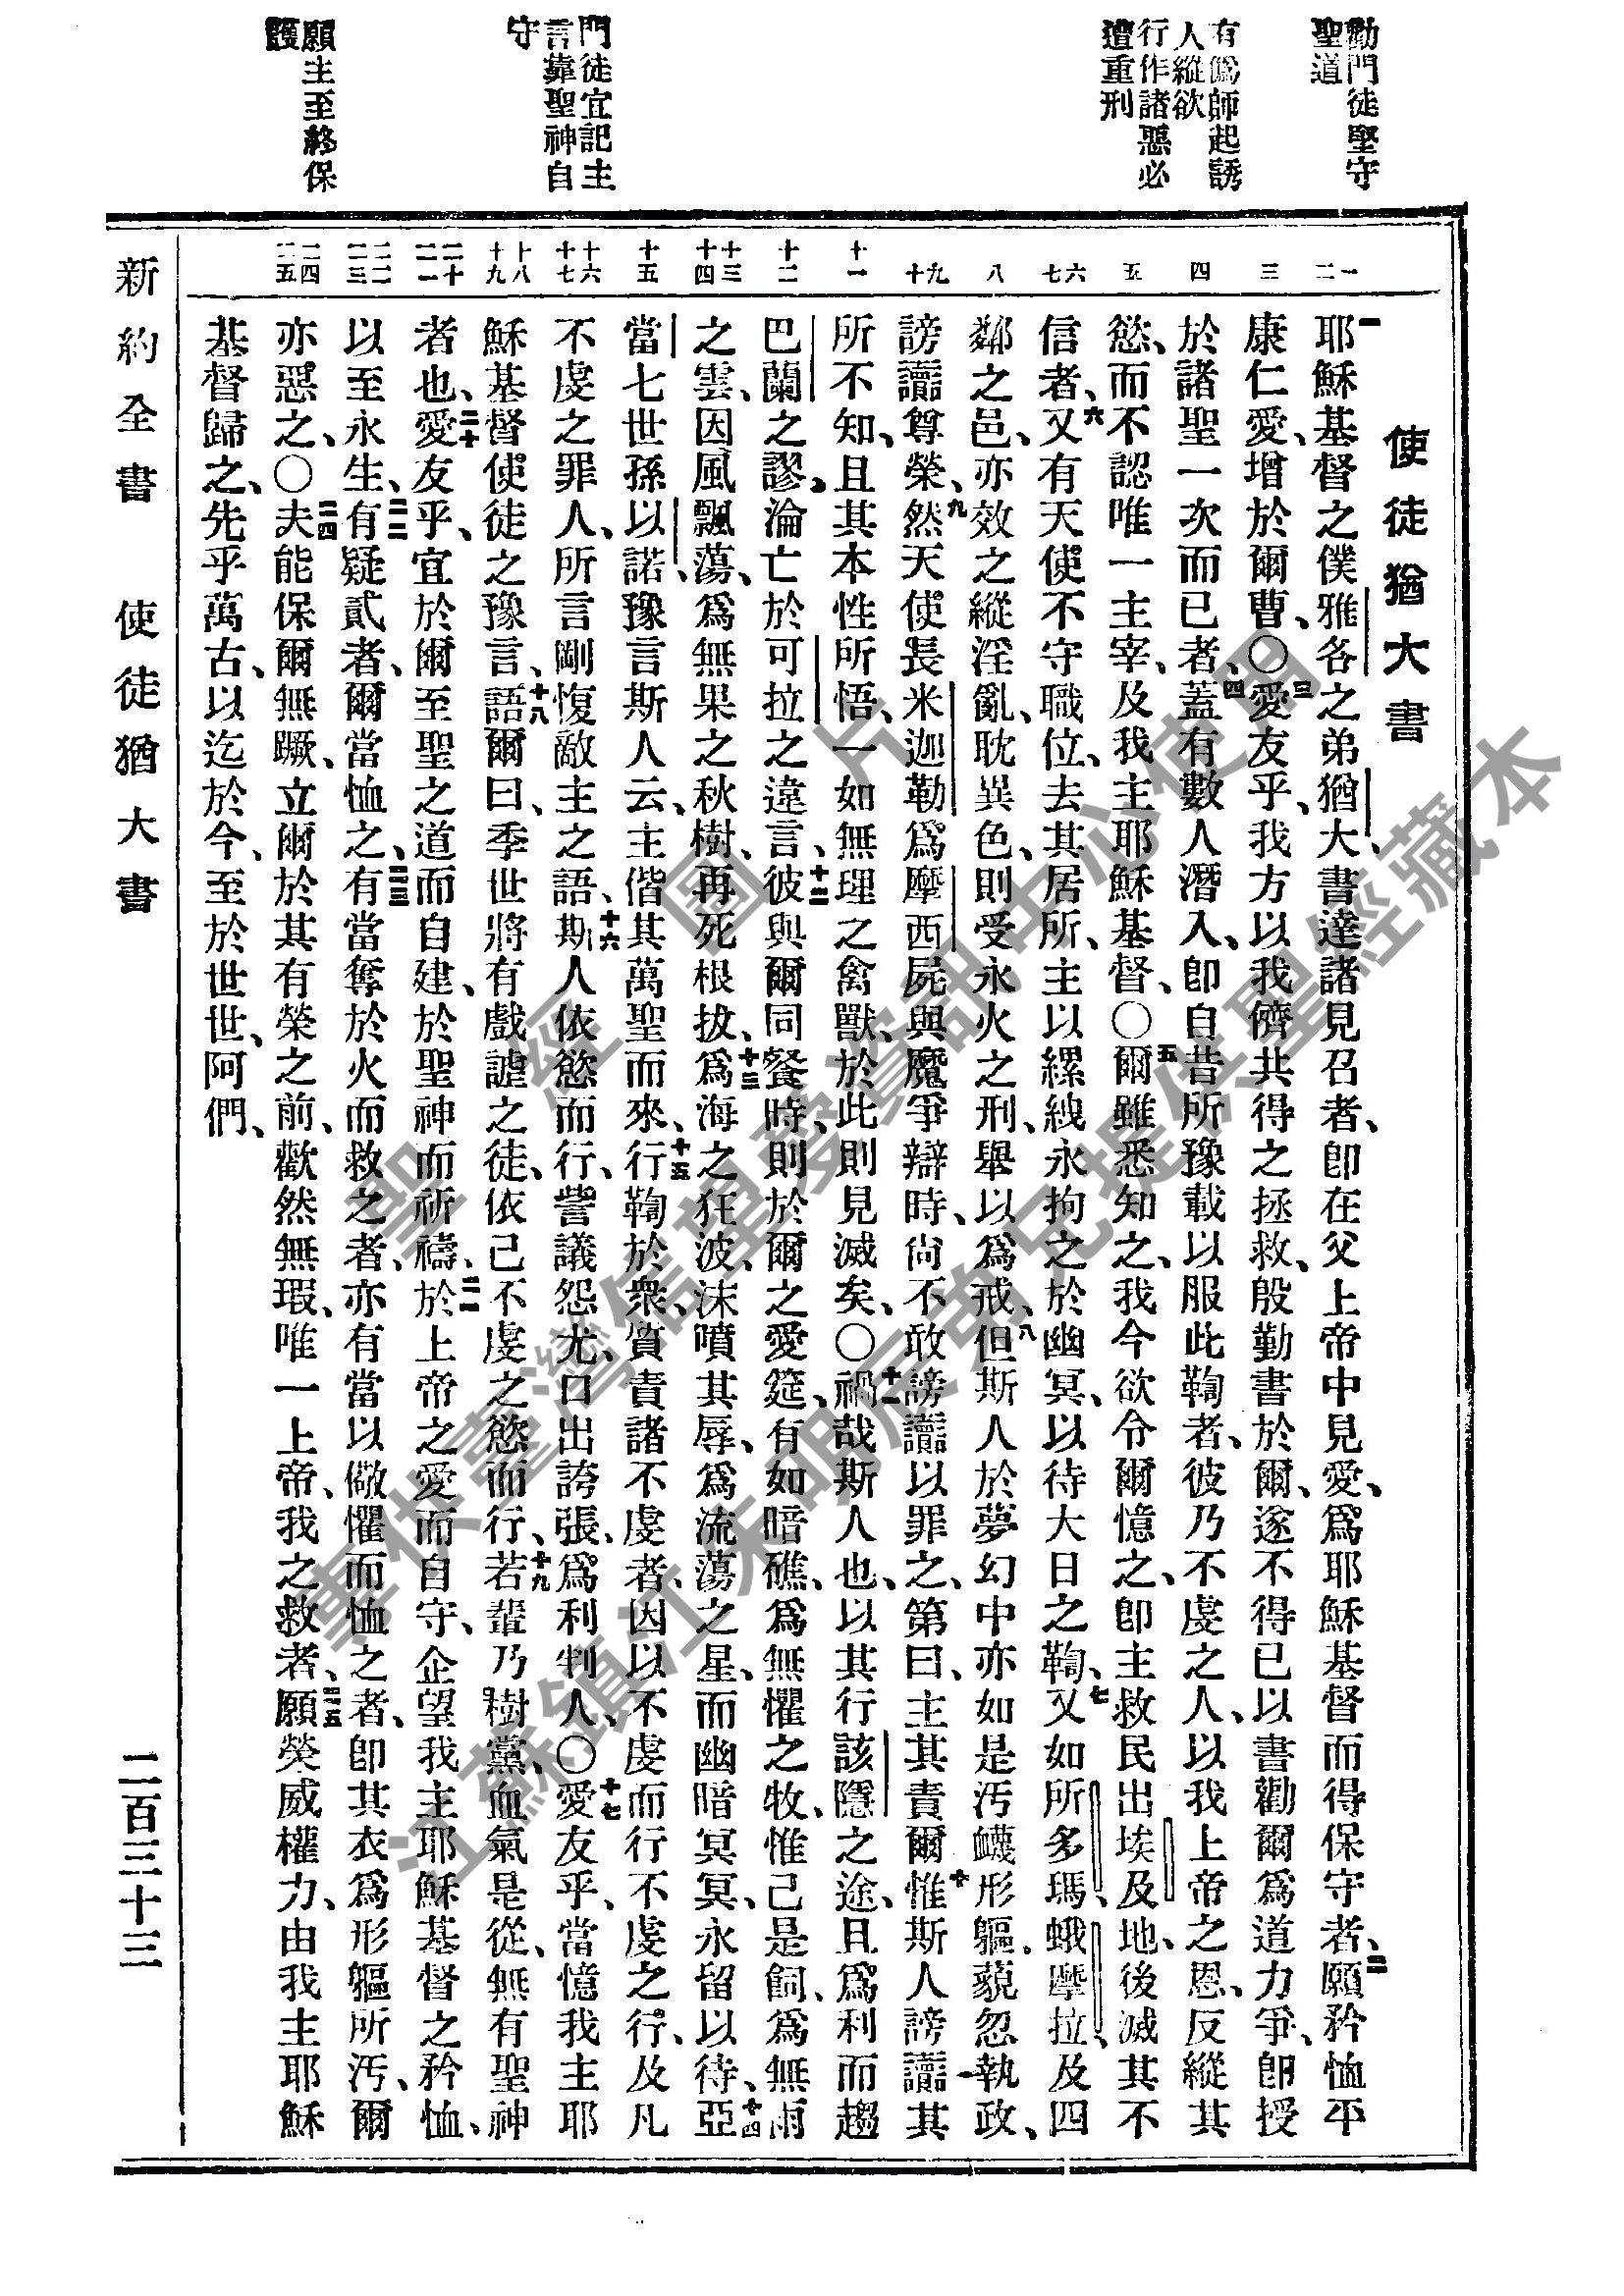 勸門徒堅守
聖道
有僞師起誘
人縱欲
行作諸惡必
遭重刑
門徒宜記主
言靠聖神自
守
願主至終保
護
使徒猶大書
一二
三
四
五
六七
八
九十
十一
十二
十三十四
十五
十六十七
十八十九
二十二一
二二二三
二四二五
一耶穌基督之僕雅各之弟猶大、書達諸見召者、卽在父上帝中見愛、爲耶穌基督而得保守者、二願矜恤平
康仁愛、增於爾曹、〇三愛友乎、我方以我儕共得之拯救、殷勤書於爾、遂不得已以書勸爾爲道力爭、卽授
於諸聖一次而已者、四蓋有數人潛入、卽自昔所豫載以服此鞫者、彼乃不虔之人、以我上帝之恩、反縱其
慾、而不認唯一主宰、及我主耶穌基督、〇五爾雖悉知之、我今欲令爾憶之、卽主救民出埃及地、後滅其不
信者、六又有天使不守職位、去其居所、主以縲絏永拘之於幽冥、以待大日之鞫、七又如所多瑪、蛾摩拉、及四
鄰之邑、亦效之縱淫亂、耽異色、則受永火之刑、舉以爲戒、八但斯人於夢幻中亦如是汚衊形軀、藐忽執政、
謗讟尊榮、九然天使長米迦勒爲摩西屍與魔爭辯時、尙不敢謗讟以罪之、第曰、主其責爾、十惟斯人謗讟其
所不知、且其本性所悟、一如無理之禽獸、於此則見滅矣、〇十一禍哉斯人也、以其行該隱之途、且爲利而趨
巴蘭之謬、淪亡於可拉之違言、十二彼與爾同餐時、則於爾之愛筵、有如暗礁、爲無懼之牧、惟己是飼、爲無雨
之雲、因風飄蕩、爲無果之秋樹、再死根拔、十三爲海之狂波、沫噴其辱、爲流蕩之星、而幽暗冥冥、永留以待、十四亞
當七世孫以諾、豫言斯人云、主偕其萬聖而來、十五行鞫於衆、質責諸不虔者、因以不虔而行不虔之行、及凡
不虔之罪人、所言剛愎敵主之語、十六斯人依慾而行、訾議怨尤、口出誇張、爲利判人、〇十七愛友乎、當憶我主耶
穌基督使徒之豫言、十八語爾曰、季世將有戲謔之徒、依己不虔之慾而行、十九若輩乃樹黨、血氣是從、無有聖神
者也、二十愛友乎、宜於爾至聖之道而自建、於聖神而祈禱、二一於上帝之愛而自守、企望我主耶穌基督之矜恤、
以至永生、二二有疑貳者、爾當恤之、二三有當奪於火而救之者、亦有當以儆懼而恤之者、卽其衣爲形軀所汚、爾
亦惡之、〇二四夫能保爾無蹶、立爾於其有榮之前、歡然無瑕、唯一上帝、我之救者、二五願榮威權力、由我主耶穌
基督歸之、先乎萬古、以迄於今、至於世世、阿們、
新約全書　使徒猶大書　二百三十三
聖經圖片
專供臺灣信望愛資訊中心使用
江蘇鎮江朱明辰弟兄提供聖經藏本